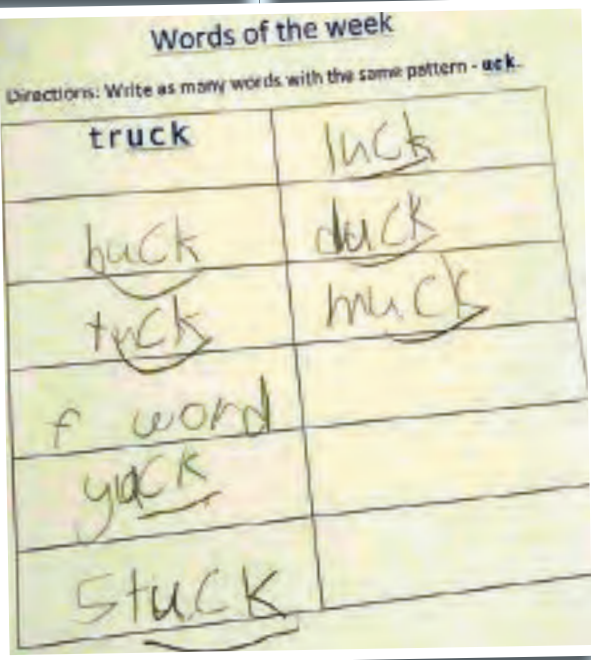 Words of the week
Directions: Write as many words with the same pattern - uck.
truck luck
buck duck
tuck muck
f word
yuck
stuck